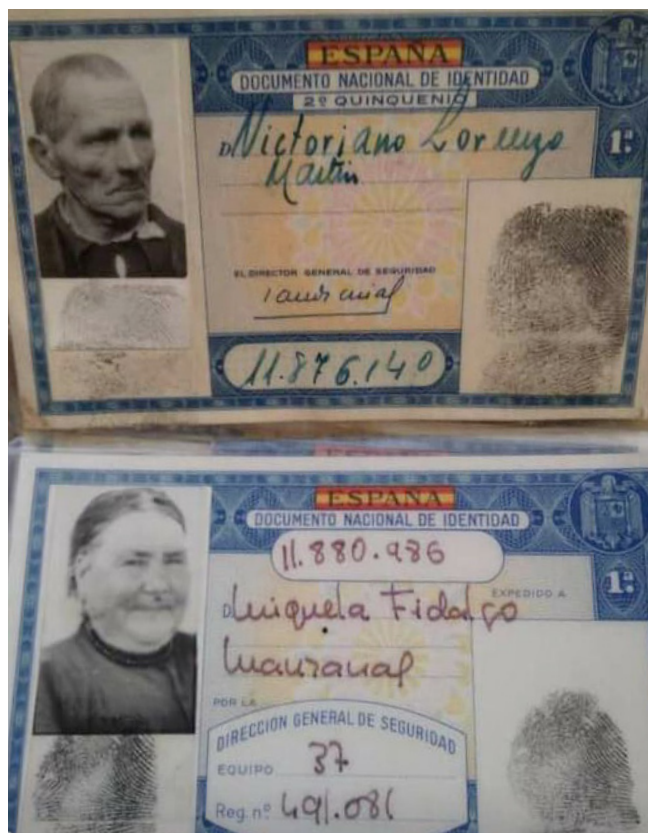 ESPAÑA
DOCUMENTO NACIONAL DE IDENTIDAD
2º QUINQUENIO
D. Victoriano Lorenzo
Martin
1ª
EL DIRECTOR GENERAL DE SEGURIDAD
11.876.140
ESPAÑA
ESPAÑA
DOCUMENTO NACIONAL DE IDENTIDAD
11.880.986
1ª
EXPEDIDO A
D. Miquela Fidalgo
Manzanal
POR LA
DIRECCION GENERAL DE SEGURIDAD
EQUIPO 37
Reg. nº 491.081